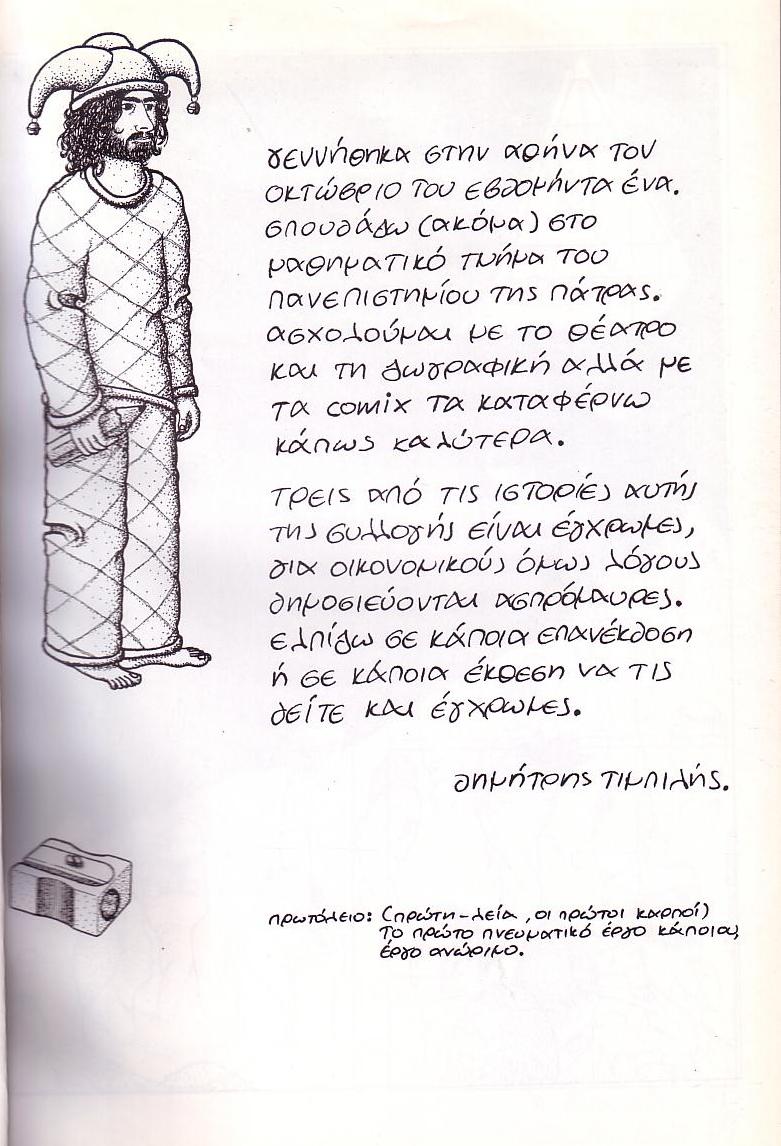 γεννήθηκα στην αθήνα τον
οκτώβριο του εβδομήντα ένα.
σπουδάζω (ακόμα) στο
μαθηματικό τμήμα του
πανεπιστημίου της πάτρας.
ασχολούμαι με το θέατρο
και τη ζωγραφική αλλά με
τα comix τα καταφέρνω
κάπως καλύτερα.
τρεις από τις ιστορίες αυτής
της συλλογής είναι έγχρωμες,
για οικονομικούς όμως λόγους
δημοσιεύονται ασπρόμαυρες.
ελπίζω σε κάποια επανέκδοση
ή σε κάποια έκθεση να τις
δείτε και έγχρωμες.
δημήτρης τιμπιλής.
πρωτόλειο: (πρώτη-λεία, οι πρώτοι καρποί)
το πρώτο πνευματικό έργο κάποιου,
έργο ανώριμο.